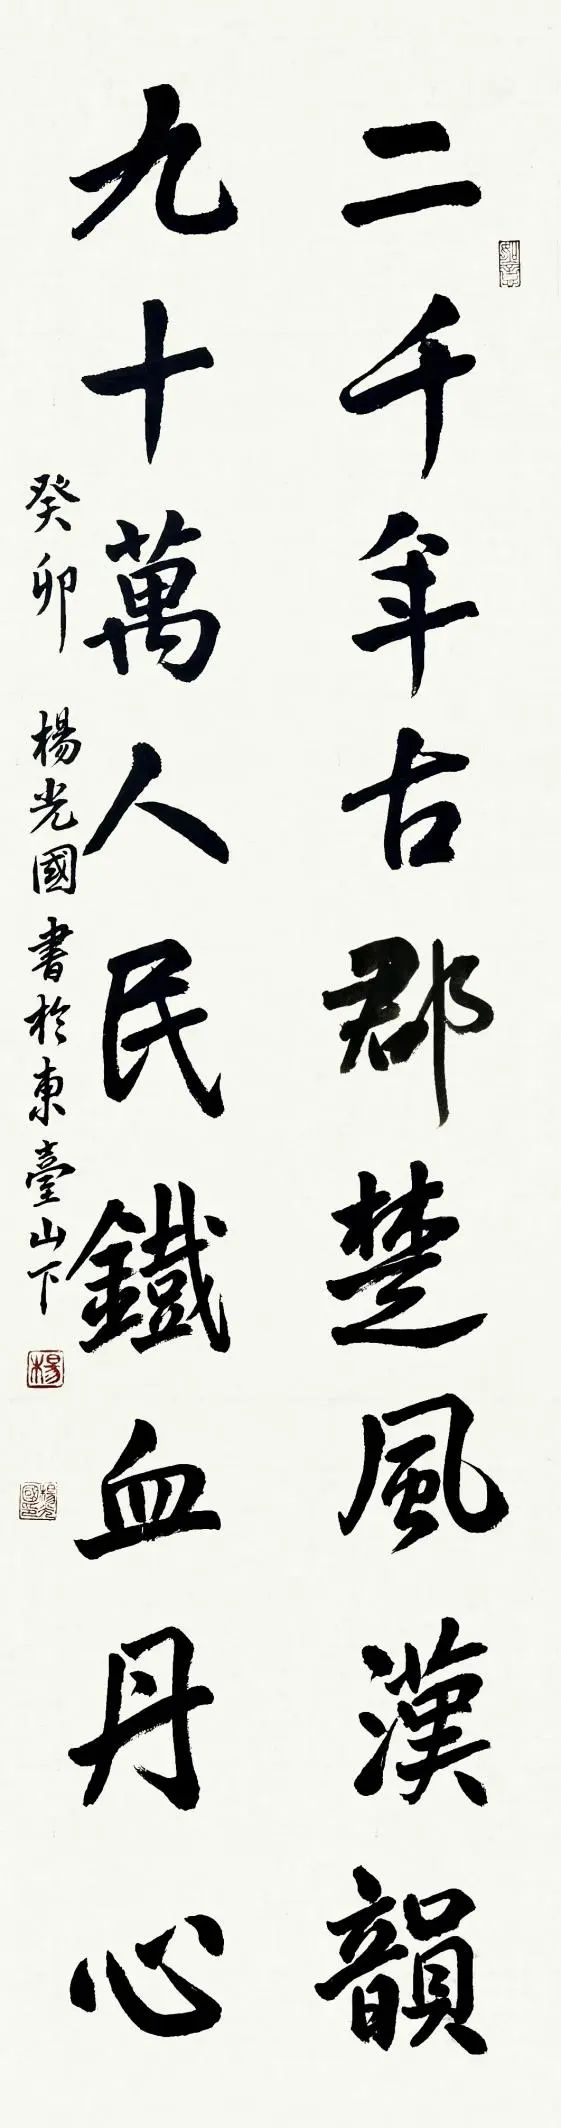 二千年古郡楚風漢韻
如意
九十萬人民鐵血丹心
癸卯 楊光國書於東臺山下
楊
楊光國印